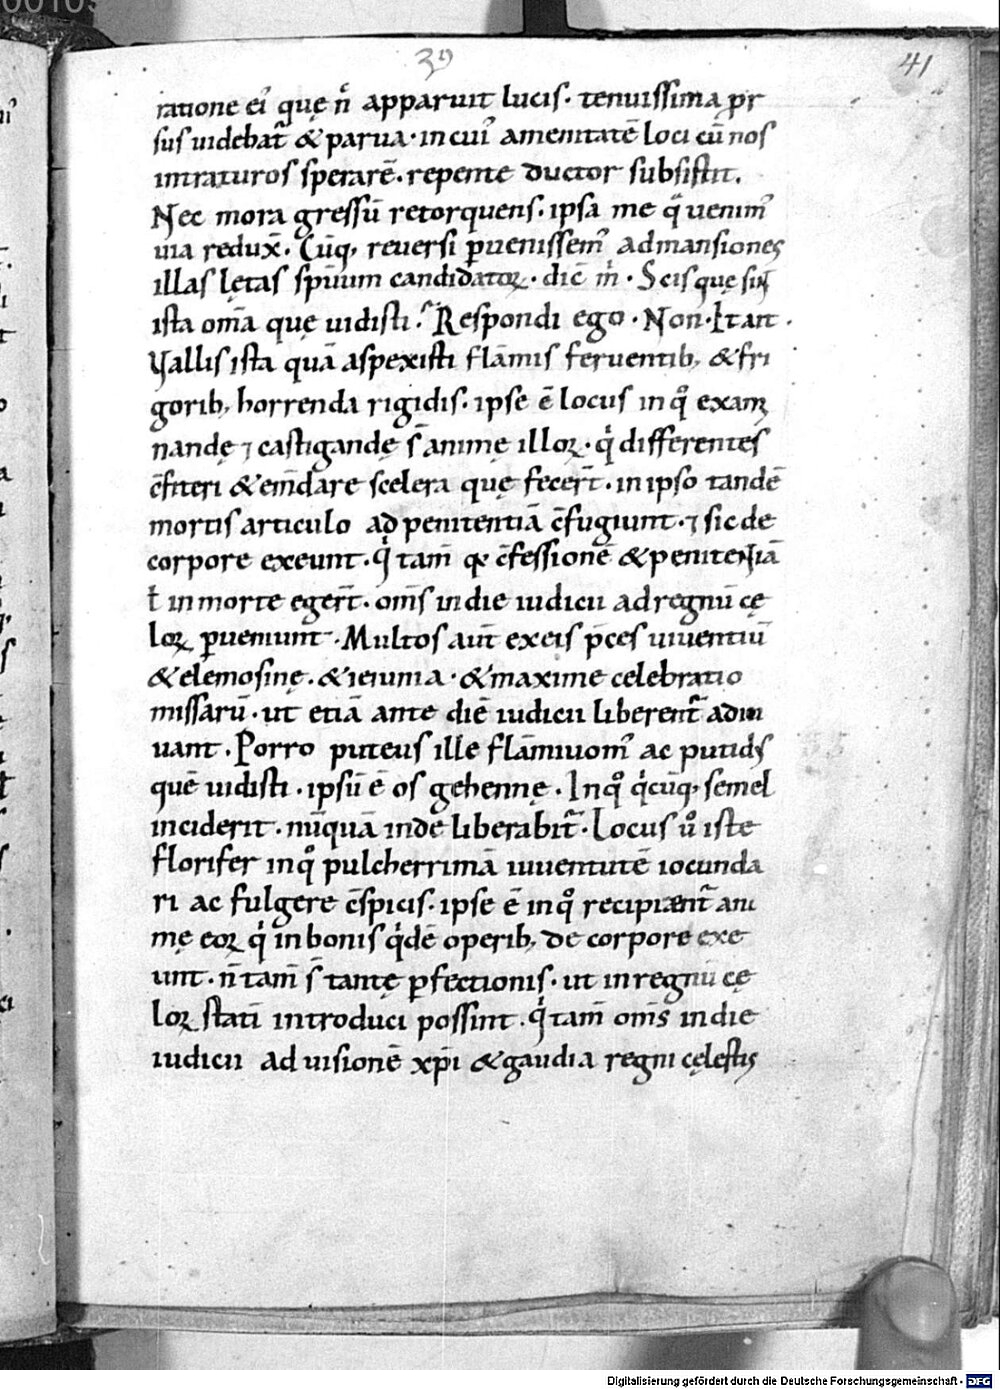 39
41
ratione ei᷒ quę n̄ apparuit lucis· tenuissima ꝓr
sus uidebat᷑ & parua· in cui᷒ amenitatē loci cū nos
intraturos sperarē· repente ductor subsistit.
Nec mora gressū retorquens· ipsa me qͣ uenim᷒
uia redux̄. Cūq; reuersi ꝑuenissem᷒ ad mansiones
illas lętas spirituum candidatoꝝ· dix̄ m̄· Scis que sint
ista om̄a quę uidisti? Respondi ego· Non· It ait·
Vallis ista quā aspexisti flāmis feruentib; & fri
gorib; horrenda rigidis· ipse ē locus in qͦ exami
nandę ⁊ castigandę s̄ animę illoꝝ· qͥ differentes
c̄fiteri & em̄dare scelera quę fecert̄· in ipso tandē
mortis articulo ad penitentiā c̄fugiunt· ⁊ sic de
corpore exeunt· qͥ tam̄ qꝛ c̄fessionē & penitentiā
ł in morte egert̄· om̄s in die iudicii ad regnū cę
loꝝ ꝑueniunt· Multos aut̄ ex eis p̄ces uiuentiū
& elemosinę· & ieiunia· & maxime celebratio
missarū· ut etiā ante diē iudicii liberent᷑ adiu
uant· Porro puteus ille flāmiuom᷒ ac putid᷒
quē uidisti· ipsū ē os gehennę· In qͦ qͥcūq; semel
inciderit· nūquā inde liberabit᷑· Locus uͦ iste
florifer in qͦ pulcherrimā iuuentutē iocunda
ri ac fulgere c̄spicis· ipse ē in qͦ recipiunt᷑ ani
mę eoꝝ qͥ in bonis qͥdē operib; de corpore exe
unt· n̄ tam̄ s̄ tantę ꝑfectionis· ut in regnū cę
loꝝ statī introduci possint· qͥ tam̄ om̄s in die
iudicii ad uisionē xp̄i & gaudia regni cęlestis
Digitalisierung gefördert durch die Deutsche Forschungsgemeinschaft - DFG